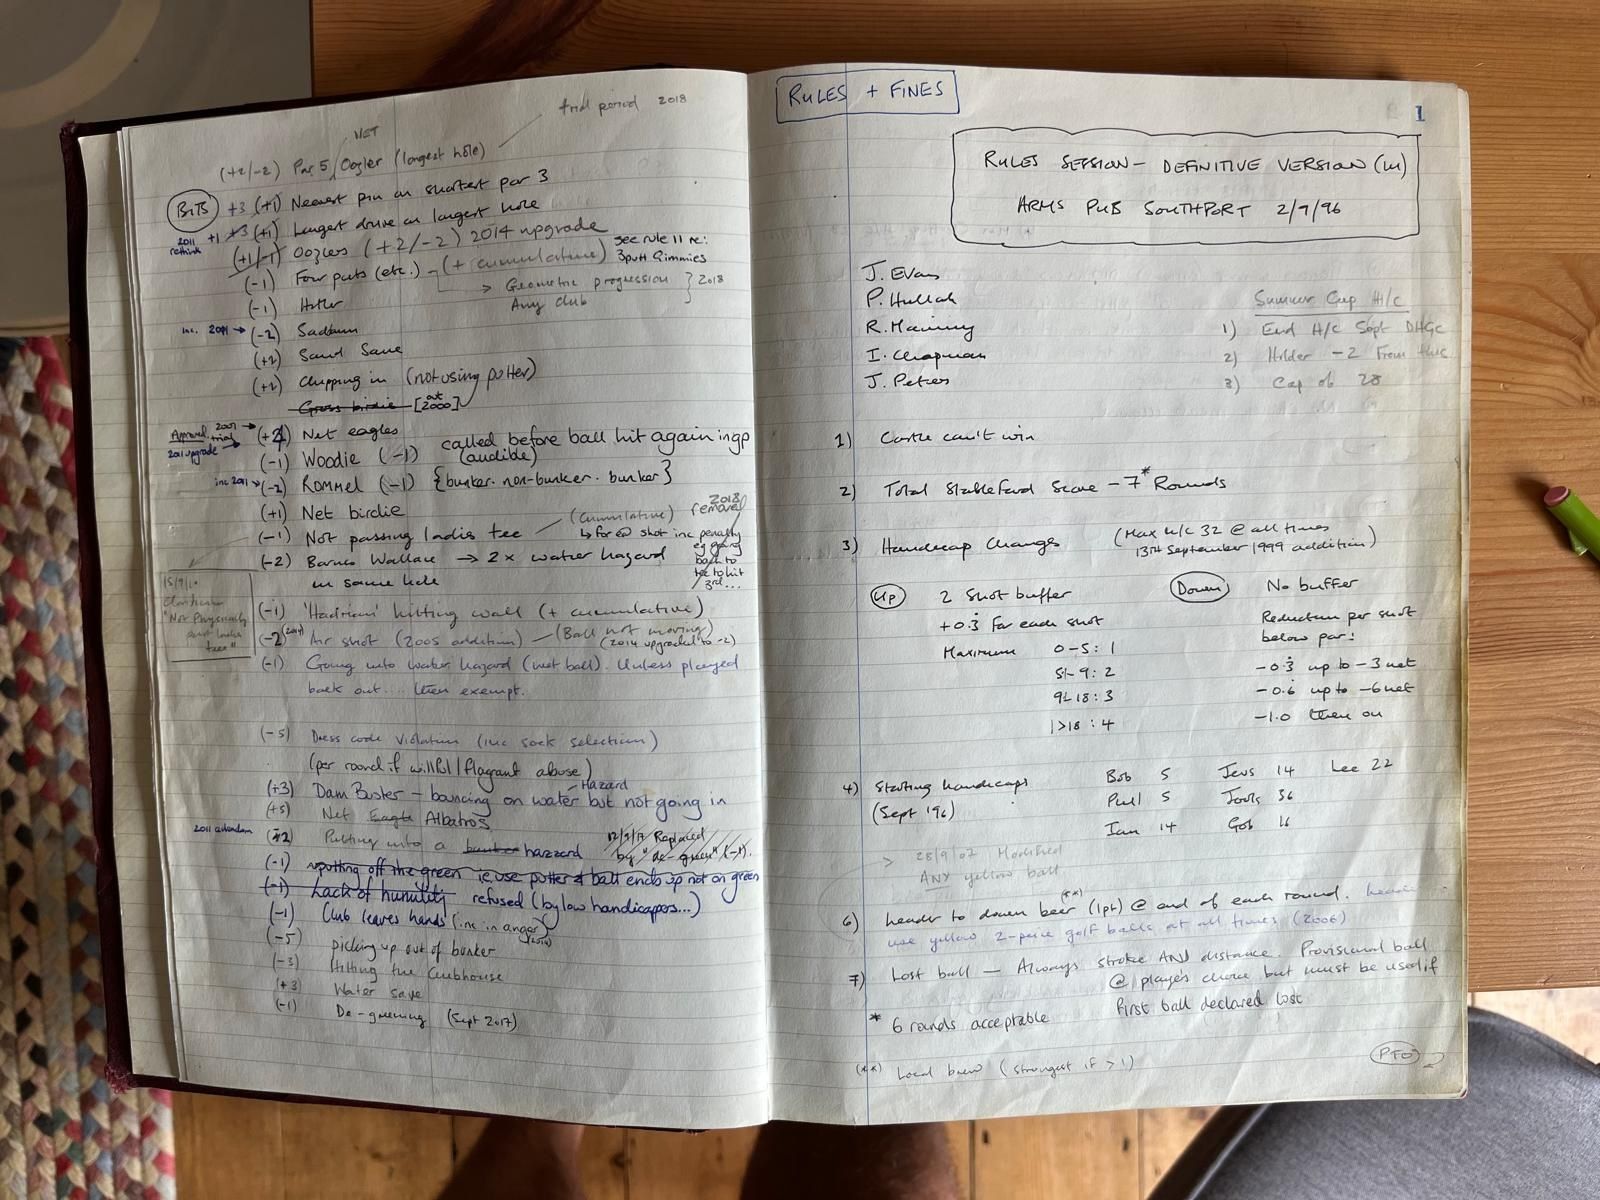 trial period 2018
NET
(+2/-2) Par 5 Oozler (longest hole)
BITS +3 (+1) Nearest pin on shortest par 3
2011 rethink +1 +3 (+1) Longest drive on longest hole
(+1/-1) Oozlers (+2/-2) 2014 upgrade
(-1) Four putts (etc.) - (+ cumulative) see rule 11 re: 3putt Gimmies
→ Geometric progression } 2018
(-1) Hitler Any club
inc. 2011 → (-2) Saddam
(+2) Sand Save
(+2) Chipping in (not using putter)
Gross birdie [out 2000]
Approval 2007 trial 2011 upgrade → (+4) Net eagles
(-1) Woodie (-1) called before ball hit again
(audible)
inc 2011 → (-2) ROMMEL (-1) {bunker. non-bunker. bunker}
(+1) Net birdie
2018 removed
(-1) Not passing ladies tee — (cumulative)
↳ for each shot inc penalty eg going back to tee to hit 3rd...
(-2) Barnes Wallace → 2 x water hazard
in same hole
15/9/10
Clarification
"Not Physically past ladies tee"
(-1) 'Hadrian' hitting wall (+ cumulative)
-2 (2014) Air shot (2005 addition) — (Ball not moving)
(2014 upgraded to -2)
(-1) Going into water hazard (wet ball). Unless played
back out.... then exempt.
(-5) Dress code violation (inc sock selection)
(per round if willful/flagrant abuse)
(+3) Dam Buster - bouncing on water Hazard but not going in
(+5) Net Eagle Albatros
2011 addendum (-2) Putting into a bunker hazzard 12/9/17 Replaced by "de-green" (-1).
(-1) putting off the green ie use putter & ball ends up not on green
(-1) Lack of humility refused (by low handicapers...)
(-1) Club leaves hands (inc in anger)
(-5) picking up out of bunker
(-3) Hitting the Clubhouse
(+3) Water save
(-1) De-greening (Sept 2017)
RULES + FINES
1
RULES SESSION - DEFINITIVE VERSION (III)
ARMS PUB SOUTHPORT 2/9/96
J. Evans
P. Hullah
R. Manning
I. Chapman
J. Peters
Summer Cup H/c
1) End H/c Sept DHGC
2) Holder -2 From this
3) Cap of 28
1) Castle can't win
2) Total Stableford Score - 7* Rounds
3) Handicap Changes (Max H/C 32 @ all times
13TH September 1999 addition)
Up 2 Shot buffer
+0.3 For each shot
Maximum 0-5: 1
5½-9: 2
9½-18: 3
>18: 4
Down No buffer
Reduction per shot
below par:
-0.3 up to -3 net
-0.6 up to -6 net
-1.0 then on
4) Starting handicaps Bob 5 Jevs 14 Lee 22
(Sept '96) Paul 5 Jools 36
Ian 14 Gob 16
> 28/9/07 Modified
ANY yellow ball
6) Leader to down beer (**) (1pt) @ end of each round. Leader
use yellow 2-piece golf balls at all times (2006)
7) Lost ball — Always stroke AND distance. Provisional ball
@ players choice but must be used if
First ball declared lost
* 6 rounds acceptable
(**) Local brew (strongest if > 1)
PTO